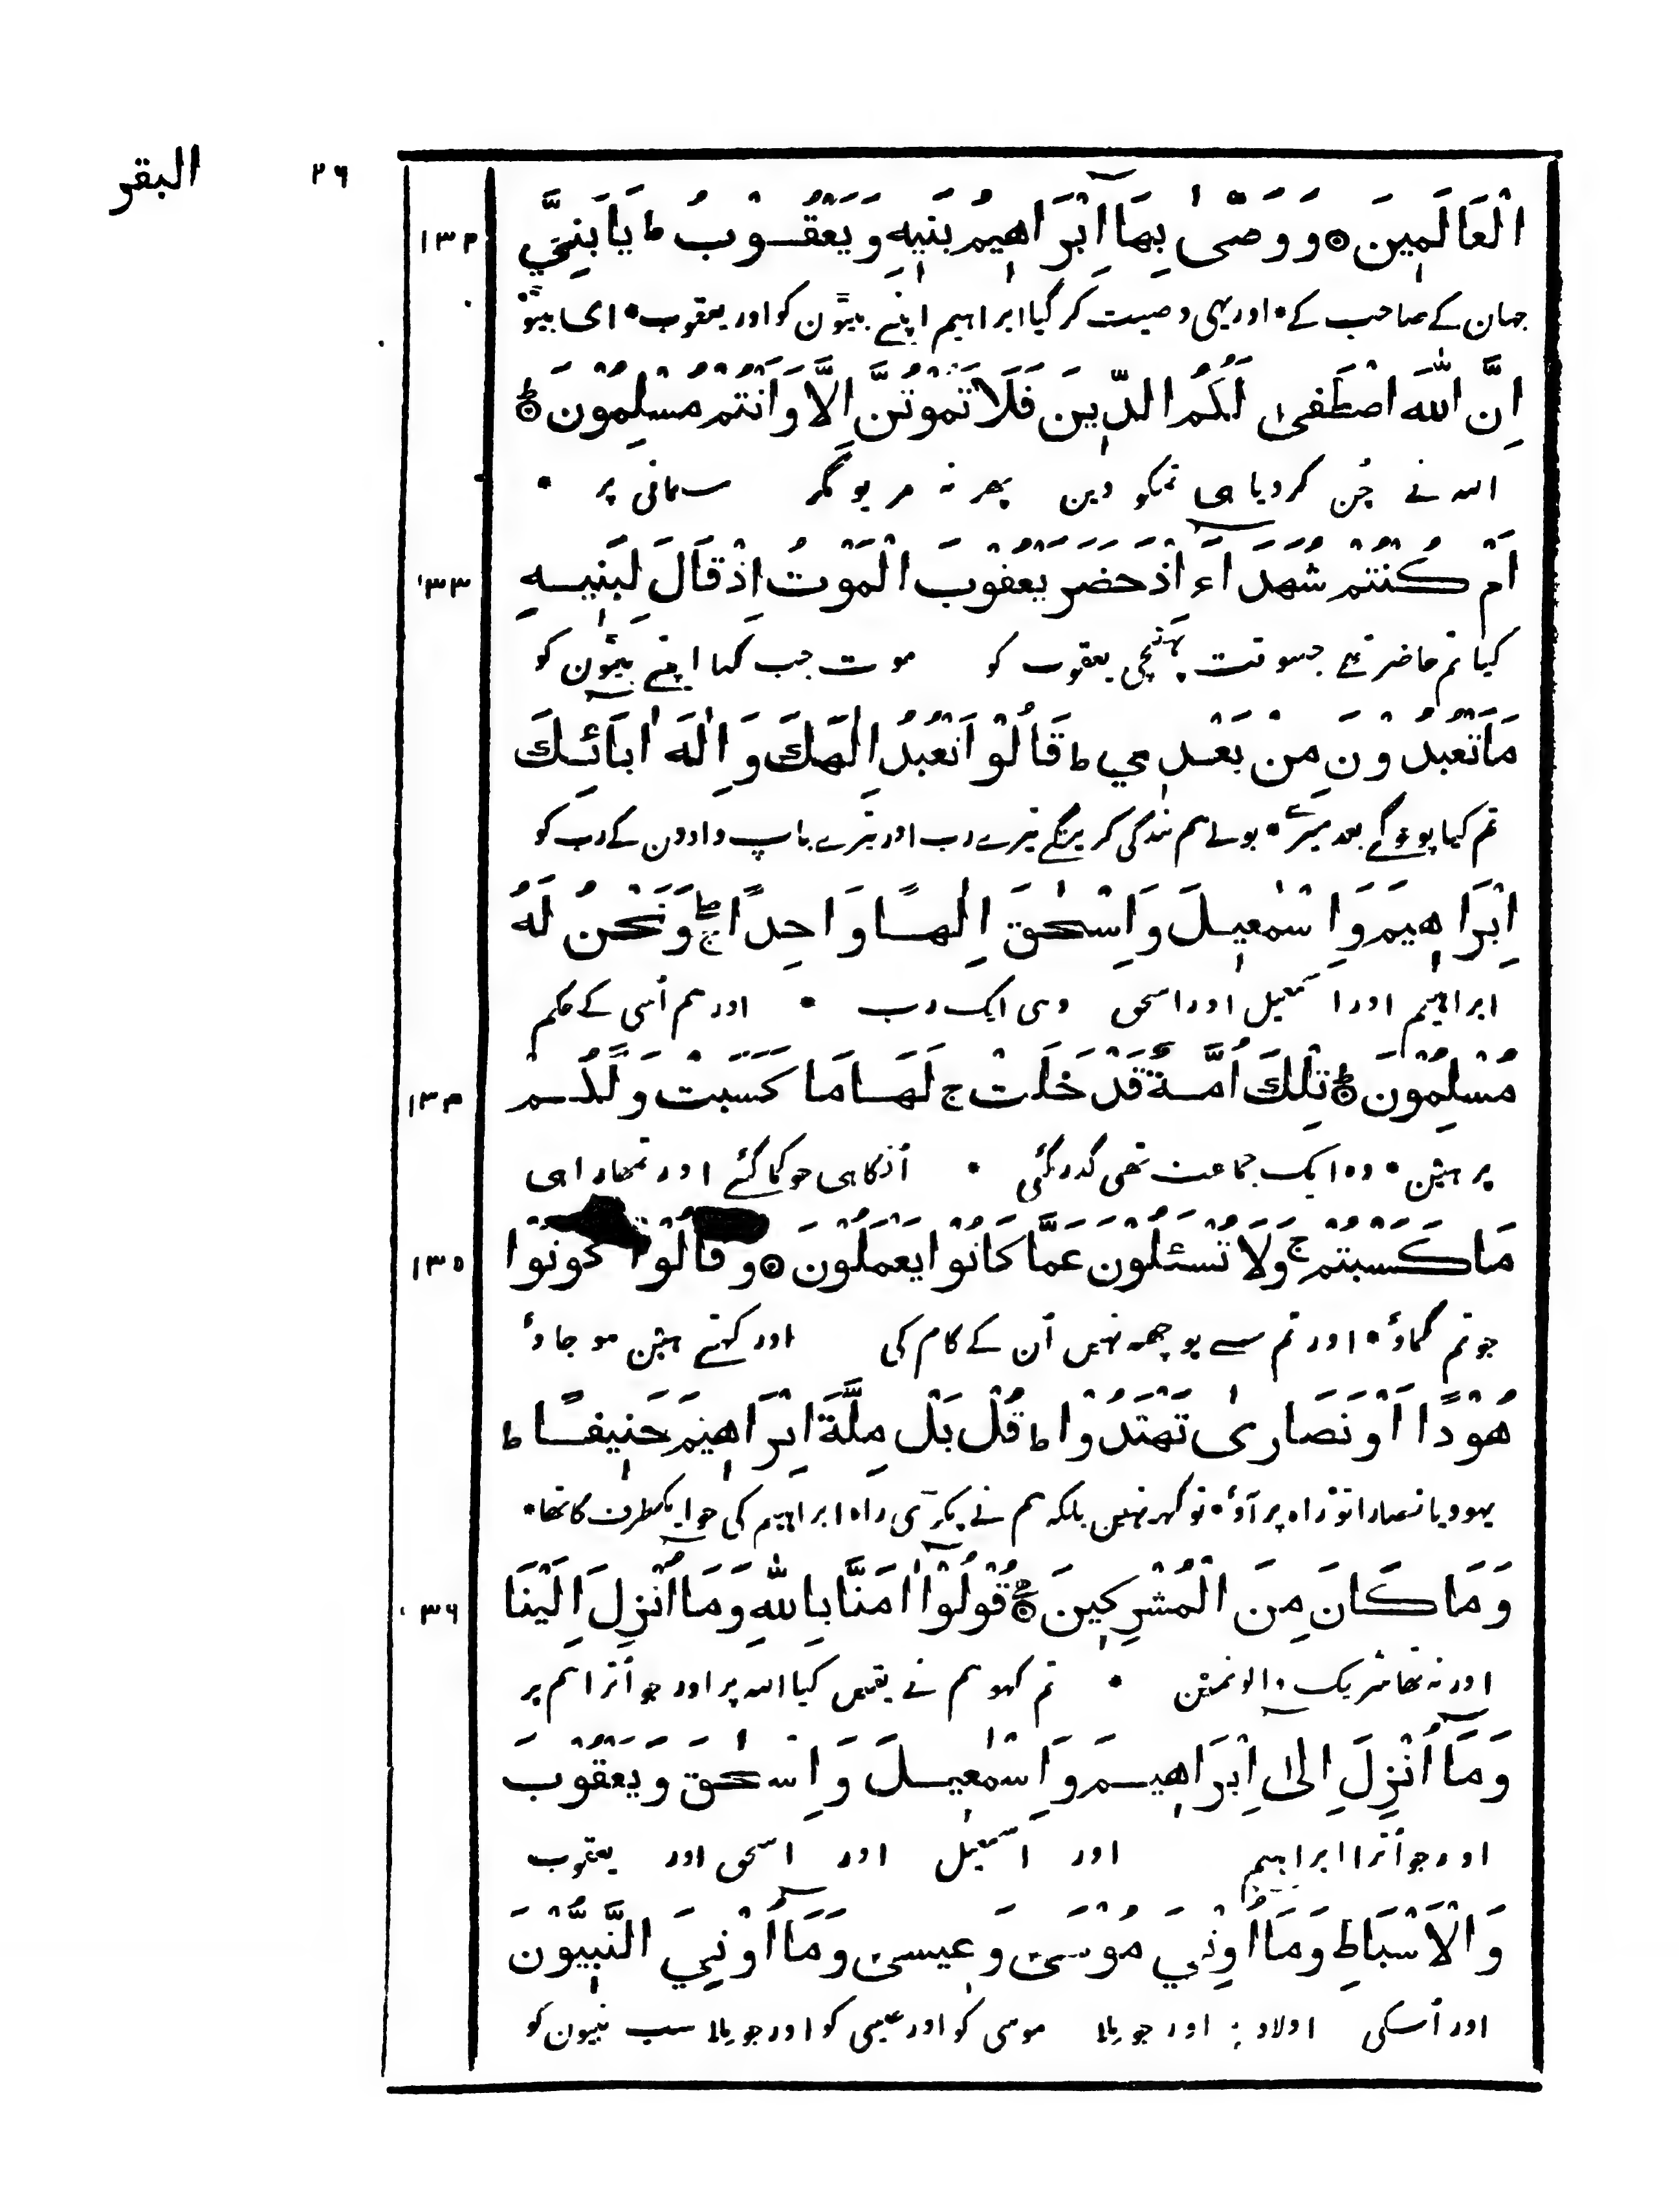 البقر ٢٦
١٣٢ الْعَالَمِينَ ۞ وَوَصّٰى بِهَا اِبْرَاهِيمُ بَنِيهِ وَيَعْقُوبُ ط يَابَنِيَّ
جهان کے صاحب کے • اور یہی وصیت کر گیا ابراہیم اپنے بیٹون کو اور یعقوب • ای بیٹو
اِنَّ اللّٰهَ اصْطَفٰى لَكُمُ الدِّينَ فَلَا تَمُوتُنَّ اِلَّا وَاَنْتُمْ مُسْلِمُوْنَ ط
الله نے چُن کر دیا هی تمکو دین پهر نه مریو مگر مسلمانی پر •
١٣٣ اَمْ كُنْتُمْ شُهَدَاءَ اِذْ حَضَرَ يَعْقُوْبَ الْمَوْتُ اِذْ قَالَ لِبَنِيهِ
کیا تم حاضر تهے جسوقت پہنچی یعقوب کو موت جب کہا اپنے بیٹون کو
مَا تَعْبُدُوْنَ مِنْ بَعْدِي ط قَالُوْا نَعْبُدُ اِلٰهَكَ وَاِلٰهَ اٰبَائِكَ
تم کیا پوجوگے بعد میرے • بولے هم بندگی کرینگے تیرے رب اور تیرے باپ دادون کے رب کو
اِبْرَاهِيمَ وَاِسْمٰعِيلَ وَاِسْحٰقَ اِلٰهًا وَاحِدًا ج وَنَحْنُ لَهُ
ابراہیم اور اسمٰعیل اور اسحق وهی ایک رب • اور هم اُسی کے حکم
١٣٤ مُسْلِمُوْنَ ط تِلْكَ اُمَّةٌ قَدْ خَلَتْ ج لَهَا مَا كَسَبَتْ وَلَكُمْ
پر هیٹن • وه ایک جماعت تهی گذر گئی • اُنکا هی جو کما گئے اور تمهارا هی
١٣٥ مَا كَسَبْتُمْ ج وَلَا تُسْئَلُوْنَ عَمَّا كَانُوْا يَعْمَلُوْنَ ۞ وَقَالُوْا كُوْنُوْا
جو تم کماؤ • اور تم سے پوچهه نہیں اُن کے کام کی اور کہتے هیٹن هو جاؤ
هُوْدًا اَوْ نَصَارٰى تَهْتَدُوْا ط قُلْ بَلْ مِلَّةَ اِبْرَاهِيْمَ حَنِيفًا ط
یهود یا نصارا تو راه پر آؤ • تو کہه نہین بلکه هم نے پکڑی راه ابراہیم کی جو ایکطرف کا تها •
١٣٦ وَمَا كَانَ مِنَ الْمُشْرِكِينَ ۞ قُوْلُوْا اٰمَنَّا بِاللّٰهِ وَمَا اُنْزِلَ اِلَيْنَا
اور نه تها شریک والونمین • تم کہو هم نے یقین کیا الله پر اور جو اُترا هم پر
وَمَا اُنْزِلَ اِلٰى اِبْرَاهِيمَ وَاِسْمٰعِيلَ وَاِسْحٰقَ وَيَعْقُوْبَ
اور جو اُترا ابراہیم اور اسمٰعیل اور اسحق اور یعقوب
وَالْاَسْبَاطِ وَمَا اُوْتِيَ مُوْسٰى وَعِيسٰى وَمَا اُوْتِيَ النَّبِيُّوْنَ
اور اُسکی اولاد پر اور جو ملا موسی کو اور عیسی کو اور جو ملا سب نبیون کو